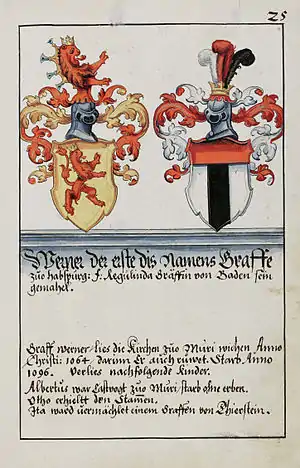 25
Werner der erste dis Namens Graffe
zuo habspurg: F. Regulinda Gräffin von Baden sein
gemahel.
Graff Werner lies die Kirchen zuo Muri wichen Anno
Christi: 1064. darum Er auch ruwet. Starb Anno
1096. Verlies nachfolgende Kinder.
Albertus war Castvogt zuo Muri starb ohne erben.
Otho erhieltt den Stamen.
Ita ward vermächlet einem Graffen von Thierstein.